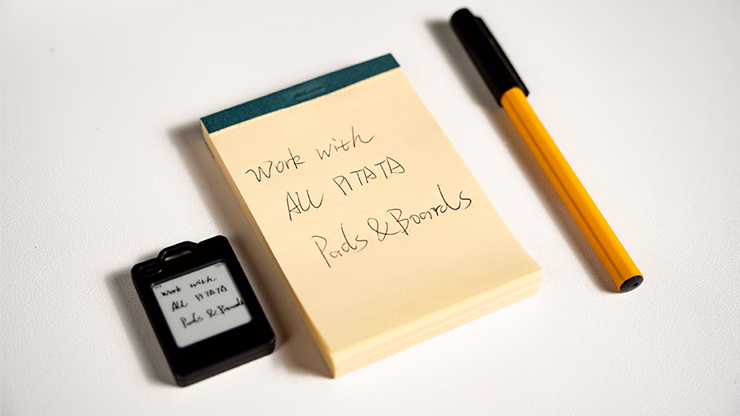 Work with
ALL PITATA
Pads & Boards
Work with
ALL PITATA
Pads & Boards